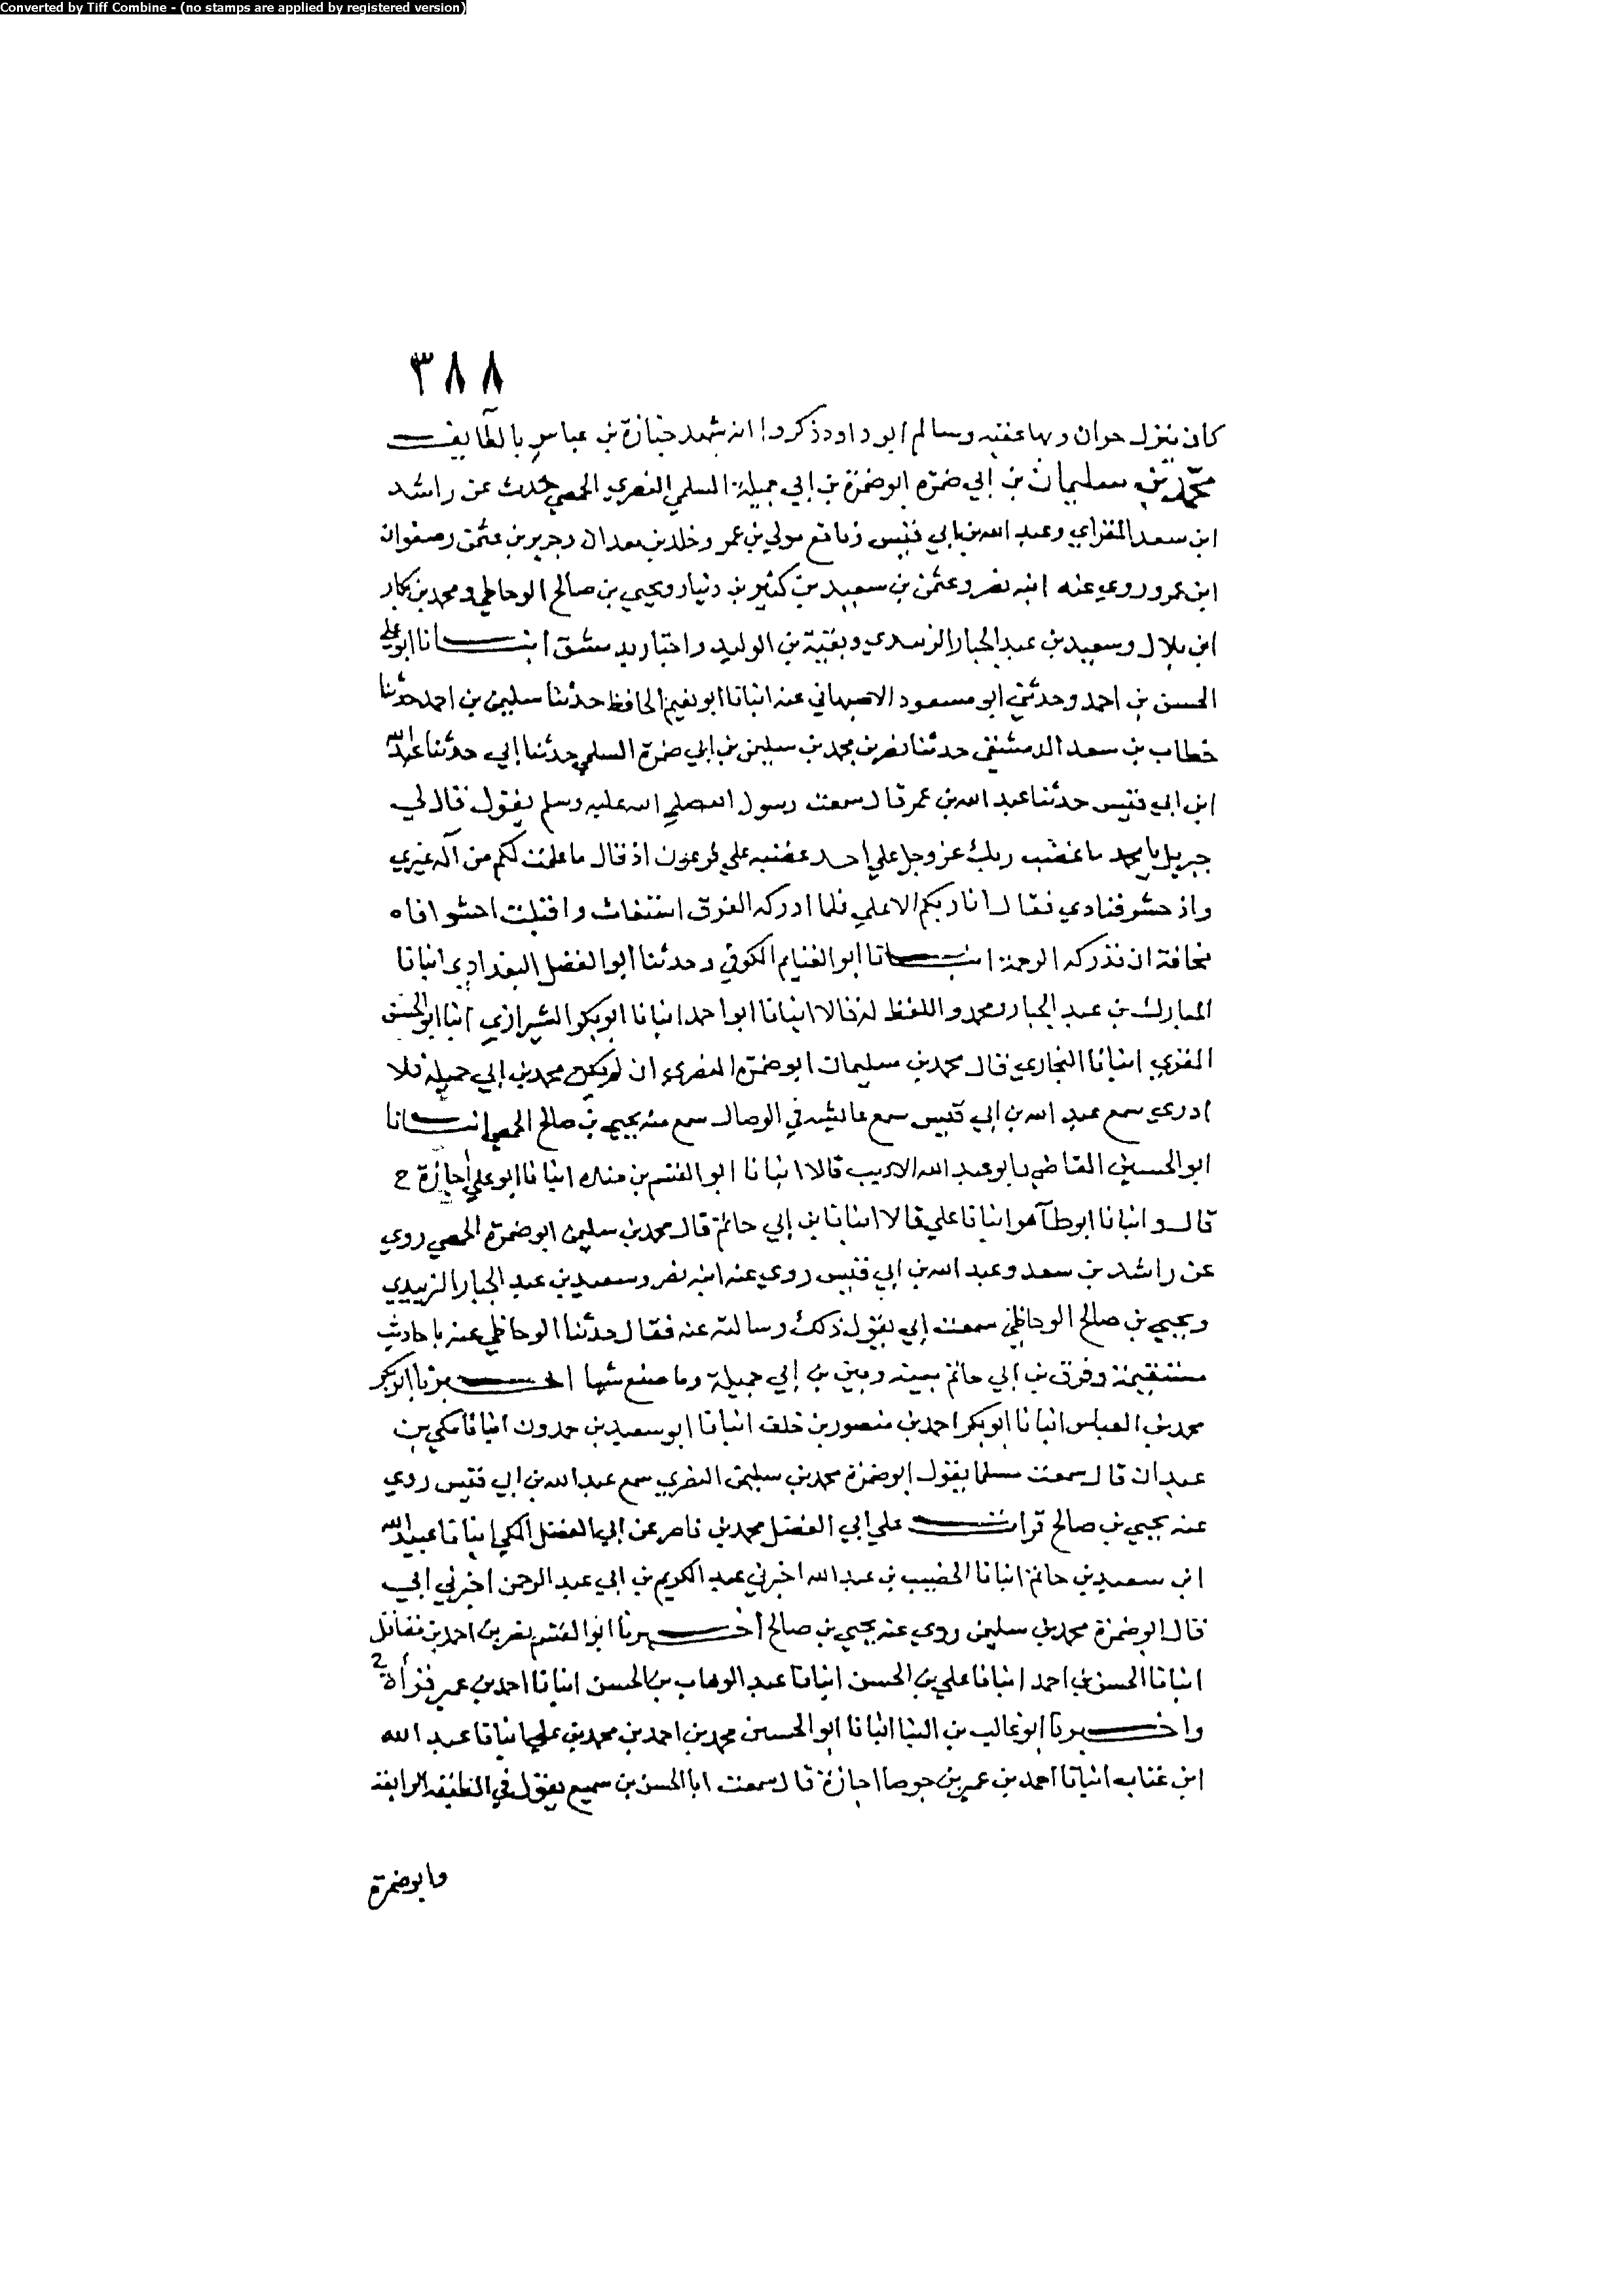 Converted by Tiff Combine - (no stamps are applied by registered version)
٣٨٨
كان ينزل حران وبها عقبه وسالم ابو داود ذكروا انه شهد جنازة بن عباس بالطايف
محمد بن سليمان بن ابي ضمرة ابو ضمرة بن ابي جميلة السلمي النصري الحمصي حدث عن راشد
ابن سعد المقراي وعبد الله بن ابي قيس ونافع مولي بن عمر وخلد بن معدان وجرير بن عثمن وصفوان
ابن عمرو روي عنه ابنه نصر وعثمن بن سعيد بن كثير بن دينار ويحيي بن صالح الوحاظي ومحمد بن بكار
ابن بلال وسعيد بن عبد الجبار الزبيدي وبقية بن الوليد واجتاز بدمشق انبانا ابو علي
الحسن بن احمد وحدثني ابو مسعود الاصبهاني عنه انبانا ابو نعيم الحافظ حدثنا سليمن بن احمد حدثنا
خطاب بن سعد الدمشقي حدثنا نصر بن محمد بن سليمن بن ابي ضمرة السلمي حدثنا ابي حدثنا عبد الله
ابن ابي قيس حدثنا عبد الله بن عمر قال سمعت رسول الله صلي الله عليه وسلم يقول قال لي
جبريل يا محمد ما غضب ربك عز وجل علي احد غضبه علي فرعون اذ قال ما علمت لكم من اله غيري
واذ حشر فنادي فقال انا ربكم الاعلي فلما ادركه الغرق استغاث واقبلت احشو افاه
مخافة ان تدركه الرحمة انبانا ابو الغنايم الكوفي وحدثنا ابو الفضل البغدادي انبانا
المبارك بن عبد الجبار ومحمد واللفظ له قالا انبانا ابو احمد انبانا ابو بكر الشيرازي انبا ابو الحسن
المقري انبانا البخاري قال محمد بن سليمان ابو ضمرة النصري ان لم يكن محمد بن ابي جميلة فلا
ادري سمع عبد الله بن ابي قيس سمع عائشه في الوصال سمع منه يحيي بن صالح الحمصي انبانا
ابو الحسين القاضي وابو عبد الله الاديب قالا انبانا ابو القسم بن منده انبانا ابو علي اجازة ح
قال وانبانا ابو طاهر انبانا علي قالا انبانا بن ابي حاتم قال محمد بن سليمن ابو ضمرة الحمصي روي
عن راشد بن سعد وعبد الله بن ابي قيس روي عنه ابنه نصر وسعيد بن عبد الجبار الزبيدي
ويحيي بن صالح الوحاظي سمعت ابي يقول ذلك وسالته عنه فقال حدثنا الوحاظي عنه باحاديث
مستقيمة وفرق بن ابي حاتم بينه وبين بن ابي جميلة وما صنع شيا اخبرنا ابو بكر
محمد بن العباس انبانا ابو بكر احمد بن منصور بن خلف انبانا ابو سعيد بن حمدون انبانا مكي بن
عبدان قال سمعت مسلما يقول ابو ضمرة محمد بن سليمن النصري سمع عبد الله بن ابي قيس روي
عنه يحيي بن صالح قرات علي ابي الفضل محمد بن ناصر عن ابي الفضل المكي انبانا عبيد الله
ابن سعيد بن حاتم انبانا الخصيب بن عبد الله اخبرني عبد الكريم بن ابي عبد الرحمن اخبرني ابي
قال ابو ضمرة محمد بن سليمن روي عنه يحيي بن صالح اخبرنا ابو القسم نصر بن احمد بن مقاتل
انبانا الحسن بن احمد انبانا علي بن الحسن انبانا عبد الوهاب بن الحسن انبانا احمد بن عمير قراة ح
واخبرنا ابو غالب بن البنا انبانا ابو الحسين محمد بن احمد بن محمد بن علي انبانا عبد الله
ابن عتاب انبانا احمد بن عمير بن جوصا اجازة قال سمعت ابا الحسن بن سميع يقول في الطبقة الرابعة
وابو ضمرة